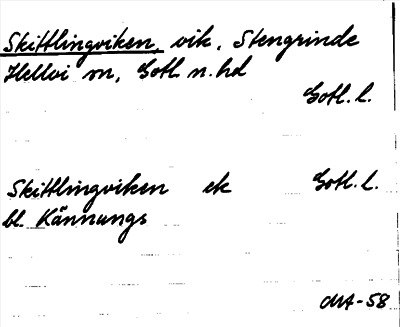 Skittlingviken, vik, Stengrinde
Hellvi sn, Gotl. n. hd
Gotl. l.
Skittlingviken ek Gotl. l.
bl. Kännungs
MA-58